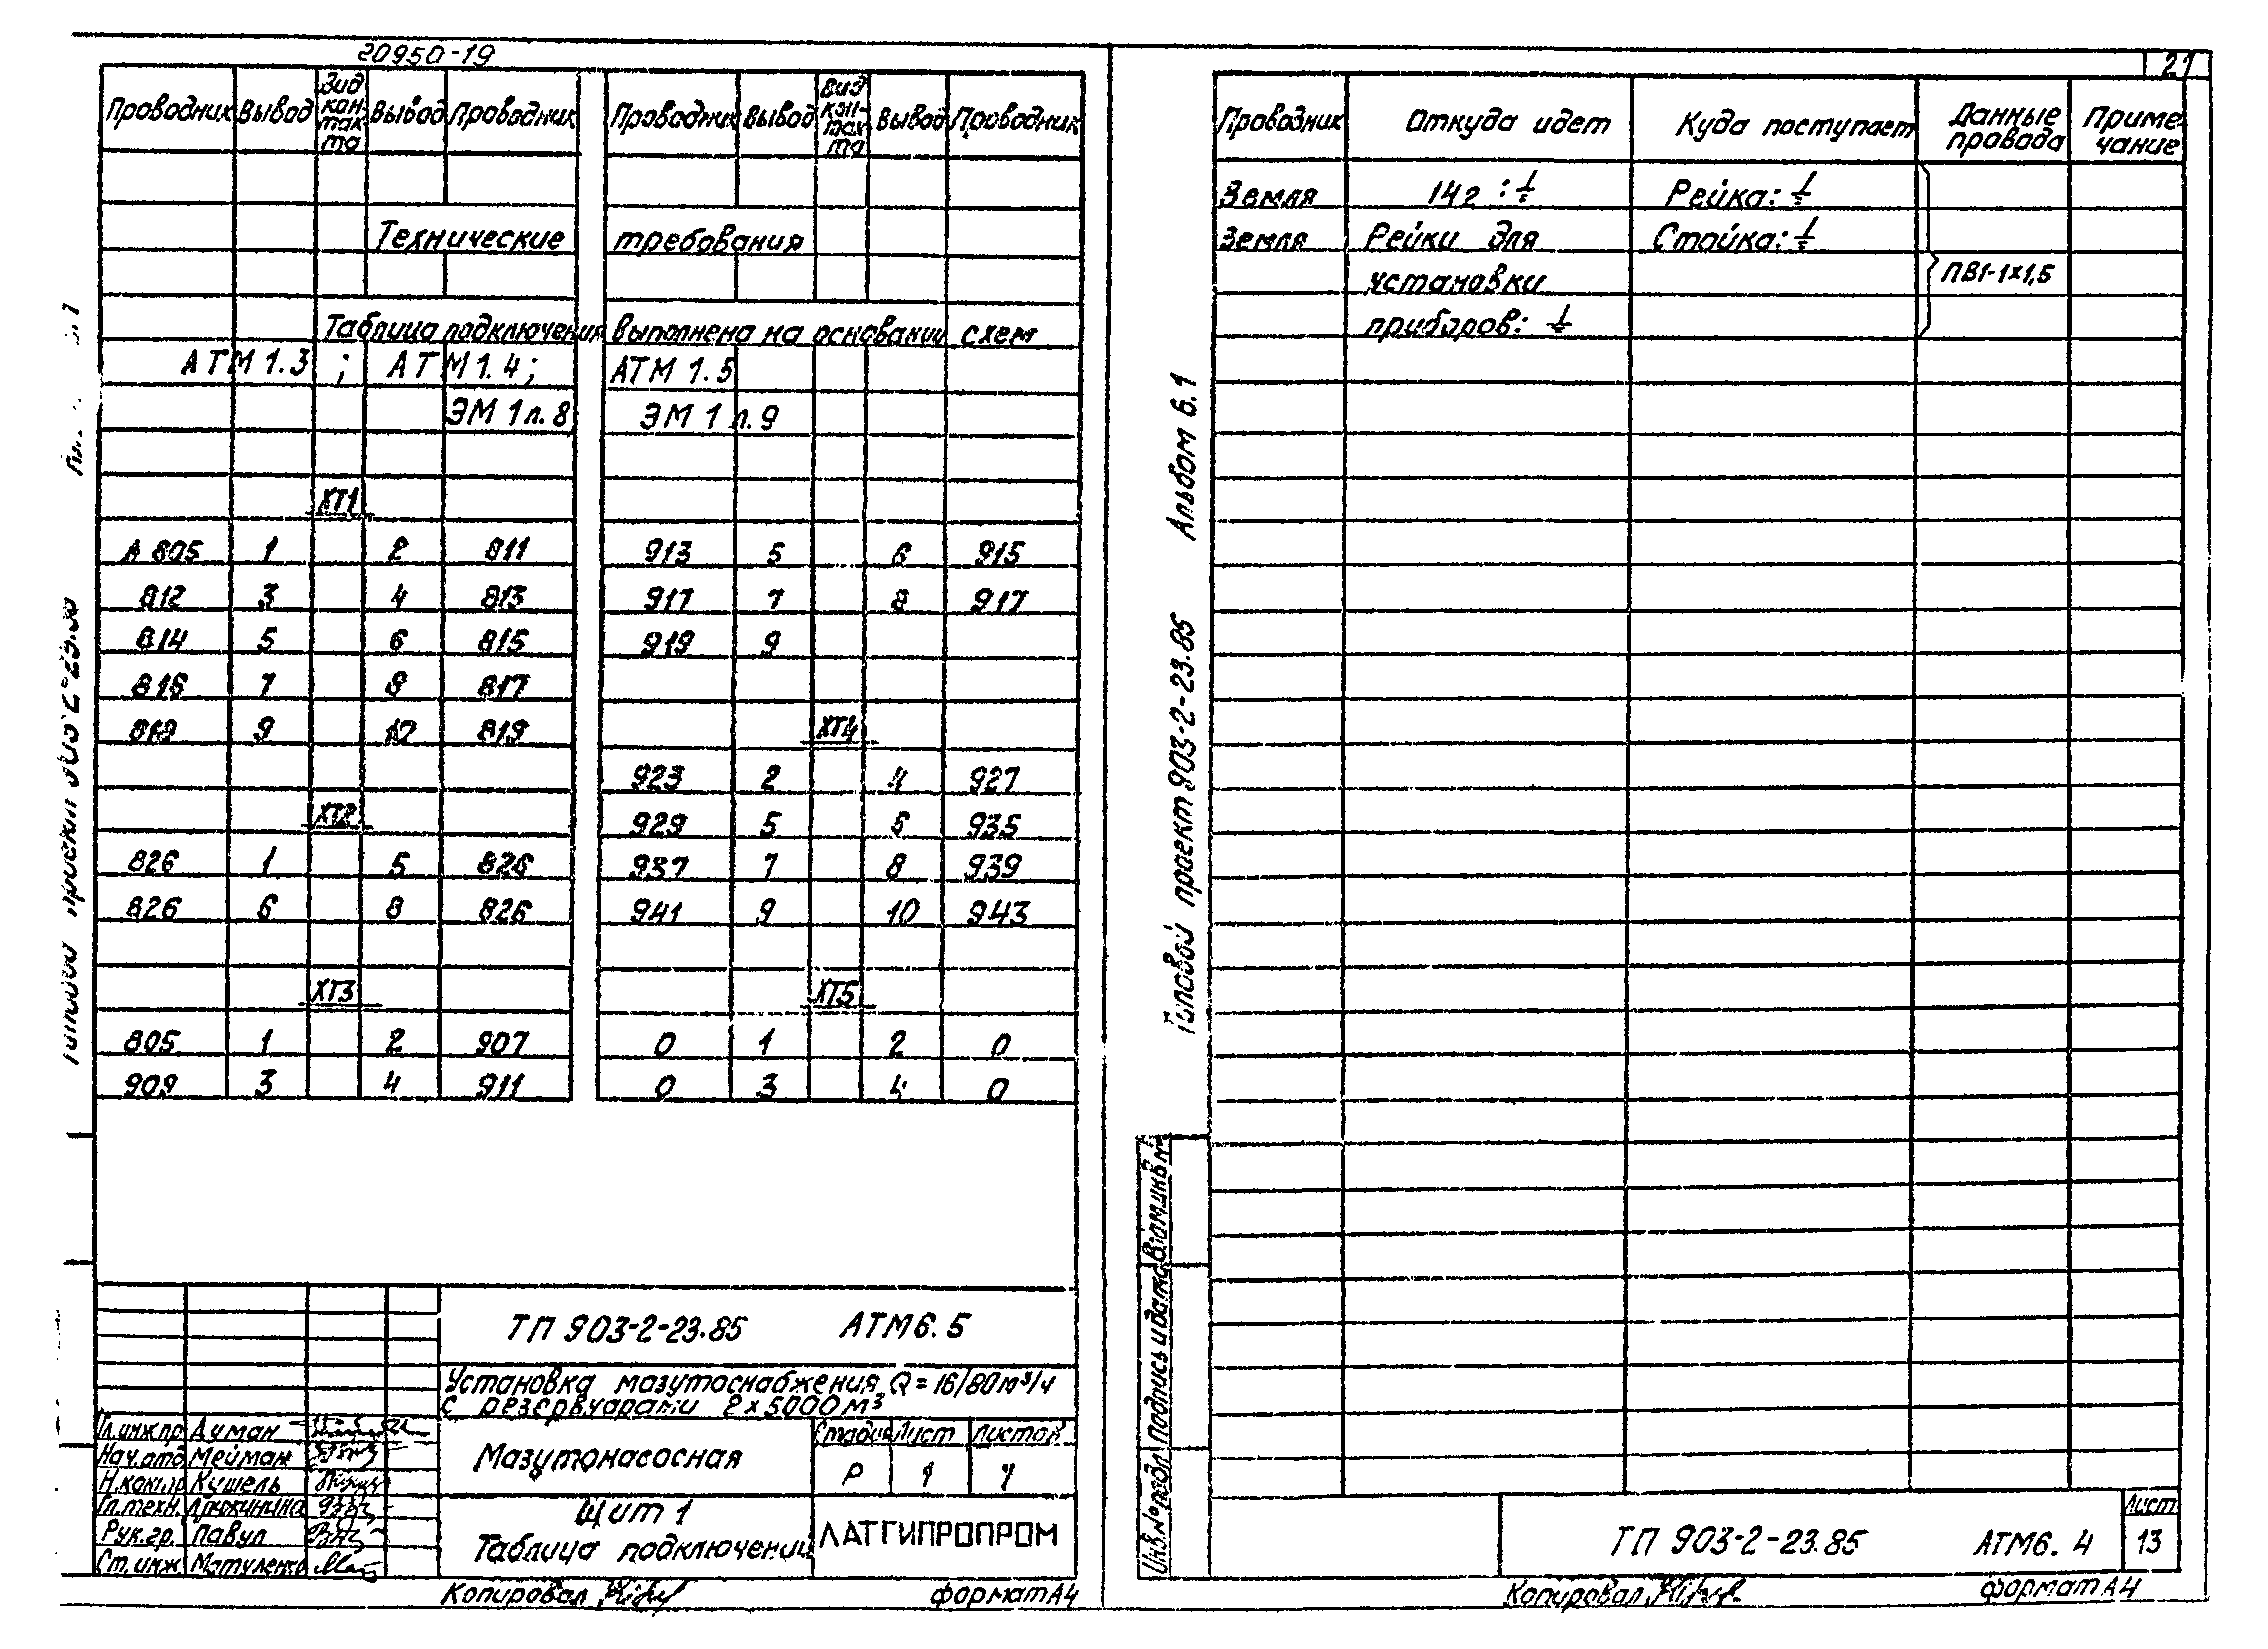 20950-19
Проводник Вывод Вид кон-так та Вывод Проводник
Технические
Таблица подключения
АТМ 1.3 ; АТМ 1.4;
ЭМ 1 л. 8
ХТ1
А 805 1 2 811
812 3 4 813
814 5 6 815
816 7 8 817
819 9 10 819
ХТ2
826 1 5 826
826 6 8 826
ХТ3
805 1 2 907
909 3 4 911
Проводник Вывод Вид кон-так та Вывод Проводник
требования
выполнена на основании схем
АТМ 1.5
ЭМ 1 л. 9
913 5 6 915
917 7 8 917
919 9
ХТ4
923 2 4 927
929 5 6 935
937 7 8 939
941 9 10 943
ХТ5
0 1 2 0
0 3 4 0
ТП 903-2-23.85 АТМ6.5
Установка мазутоснабжения Q=16/80м³/ч
с резервуарами 2×5000м³
Гл.инж.пр. Ауман
Нач.отд. Мейман
Н.контр. Кушель
Гл.техн. Дружинина
Рук.гр. Павул
Ст.инж.
Мазутонасосная
Стадия Лист Листов
Р 1 7
Щит 1
Таблица подключений
ЛАТГИПРОПРОМ
Копировал
формат А4
21
Проводник Откуда идет Куда поступает Данные провода Приме-чание
Земля 14г :⏚ Рейка:⏚
Земля Рейки для Стойка:⏚
установки ПВ1-1×1,5
приборов: ⏚
Альбом 6.1
Типовой проект 903-2-23.85
Инв.№подл. Подпись и дата Взам.инв.№
ТП 903-2-23.85 АТМ6.4
Лист
13
Копировал
формат А4